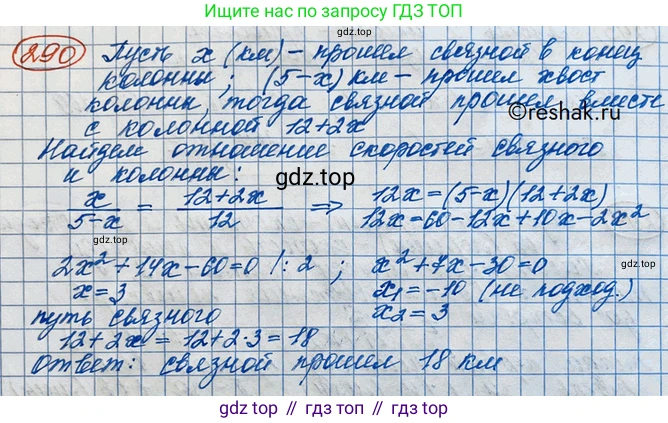 Ищите нас по запросу ГДЗ ТОП
290 Пусть x (км) – прошел связной в конец
колонны; (5-x) км – прошел хвост
колонны, тогда связной прошел вместе
с колонной 12+2x
©reshak.ru
Найдем отношение скоростей связного
и колонны:
гдз.top
x/(5-x) = (12+2x)/12 ⇒ 12x=(5-x)(12+2x)
12x=60-12x+10x-2x²
2x²+14x-60=0 /:2 ; x²+7x-30=0
x=3 x₁=-10 (не подход.)
путь связного x₂=3
12+2x = 12+2·3=18
Ответ: связной прошел 18 км
gdz.top // гдз.top // gdz.top